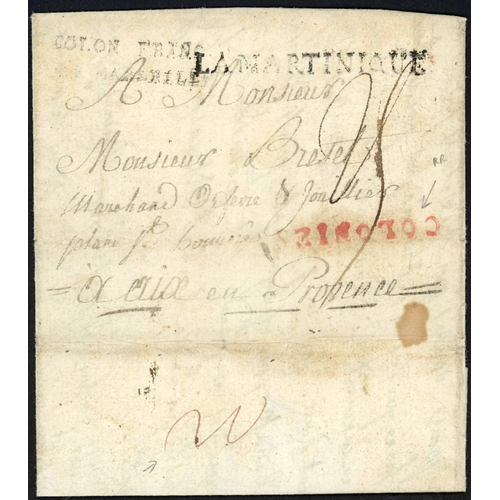 COLON FRANS
MARSEILLE
LA MARTINIQUE
A Monsieur
Monsieur Bretet
Marchand Orfevre & Jouallier
place St
COLONIES
à aix en Provence
RR